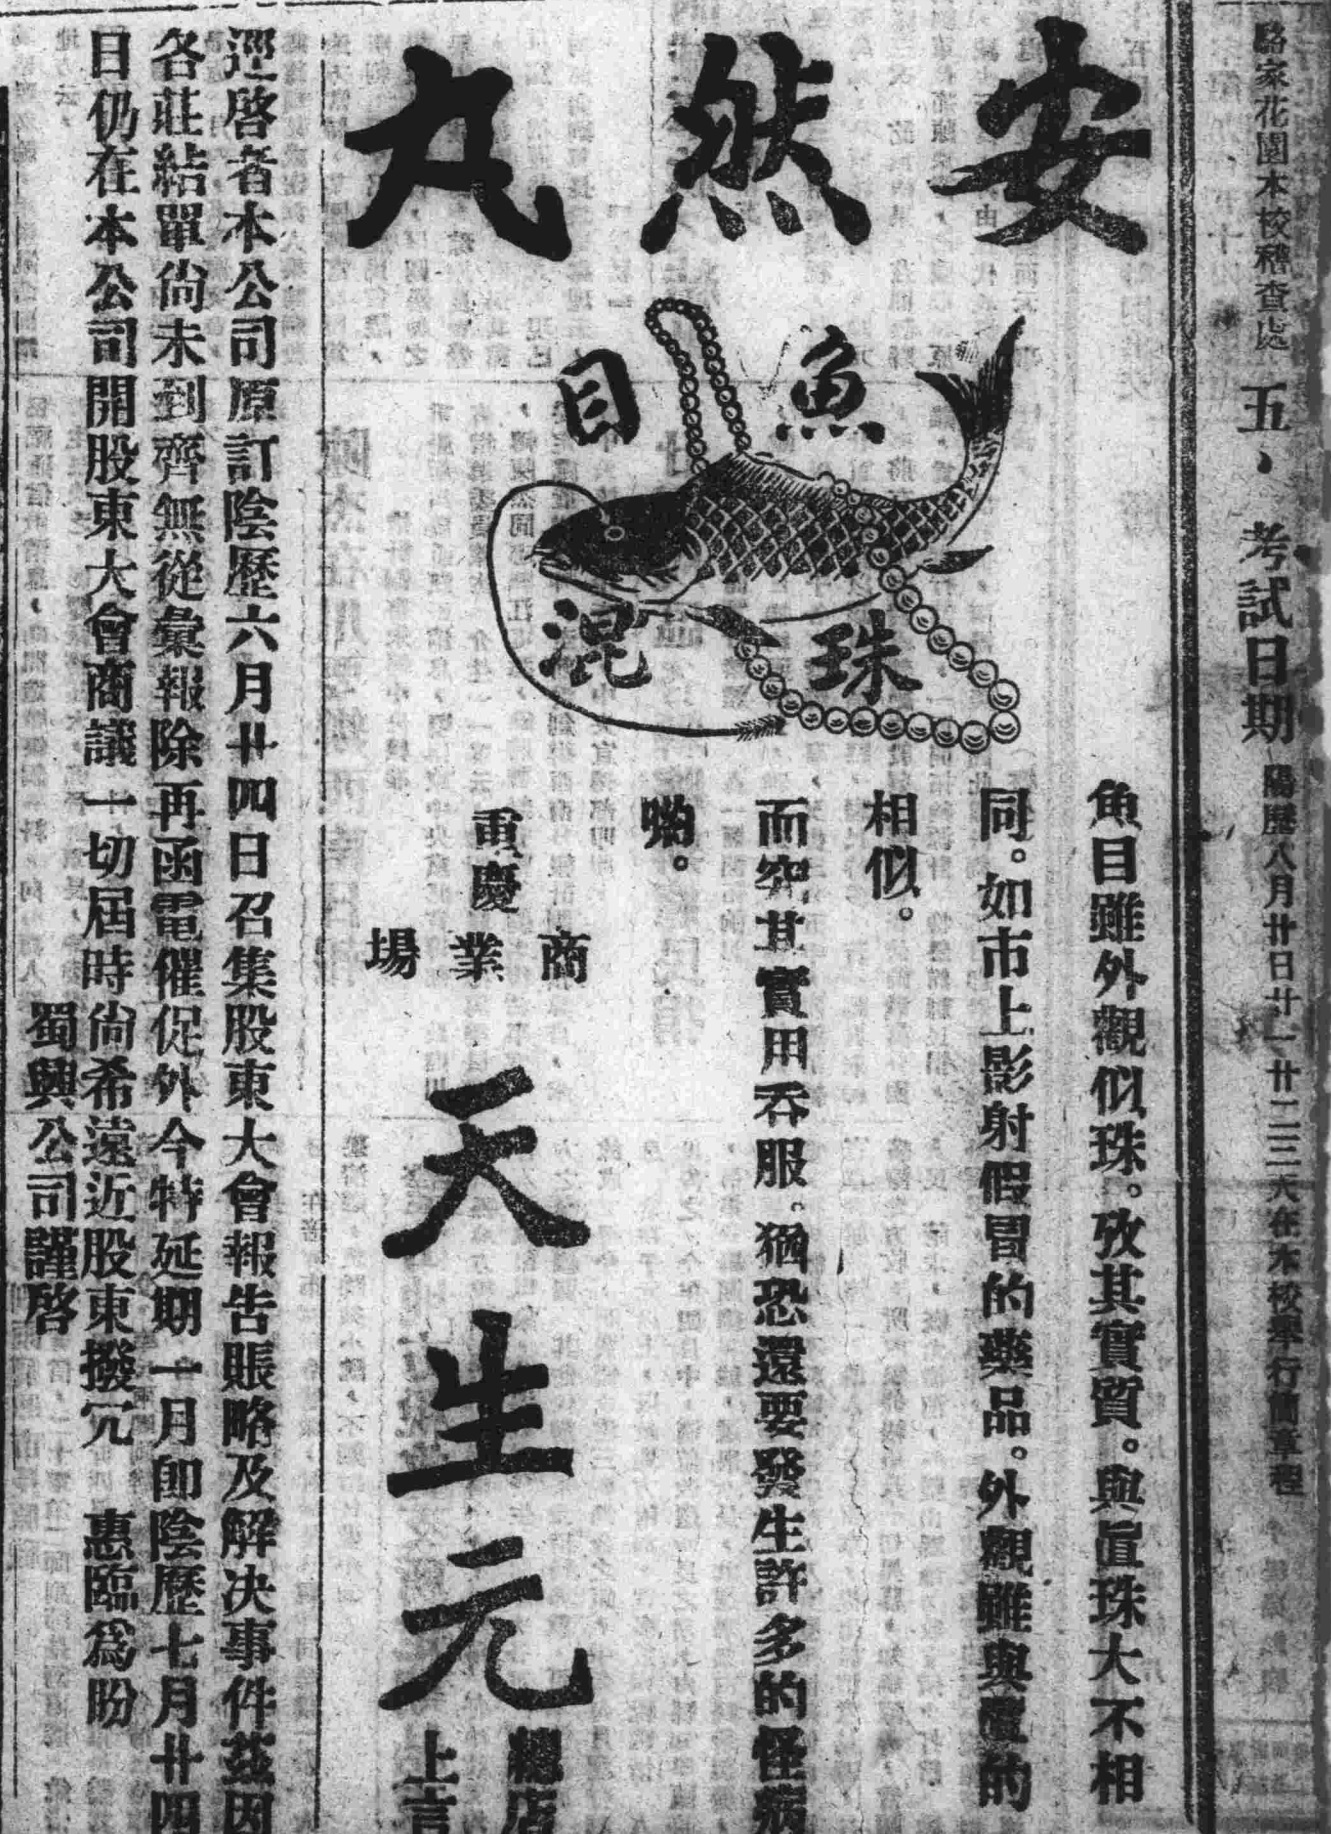 駱家花園本校稽查處 五、考試日期 陽歷八月廿日廿一廿二三天在本校舉行簡章程
安然丸
魚目
混珠
魚目雖外觀似珠。攷其實質。與眞珠大不相
同。如市上影射假冒的藥品。外觀雖與眞的
相似。
而究其實用吞服。猶恐還要發生許多的怪病
喲。
重慶
商業場
天生元
總店
上言
逕啓者本公司原訂陰歷六月廿四日召集股東大會報告賬略及解决事件茲因
各莊結單尙未到齊無從彙報除再函電催促外今特延期一月卽陰歷七月廿四
日仍在本公司開股東大會商議一切屆時尙希遠近股東撥冗 惠臨爲盼
蜀興公司謹啓